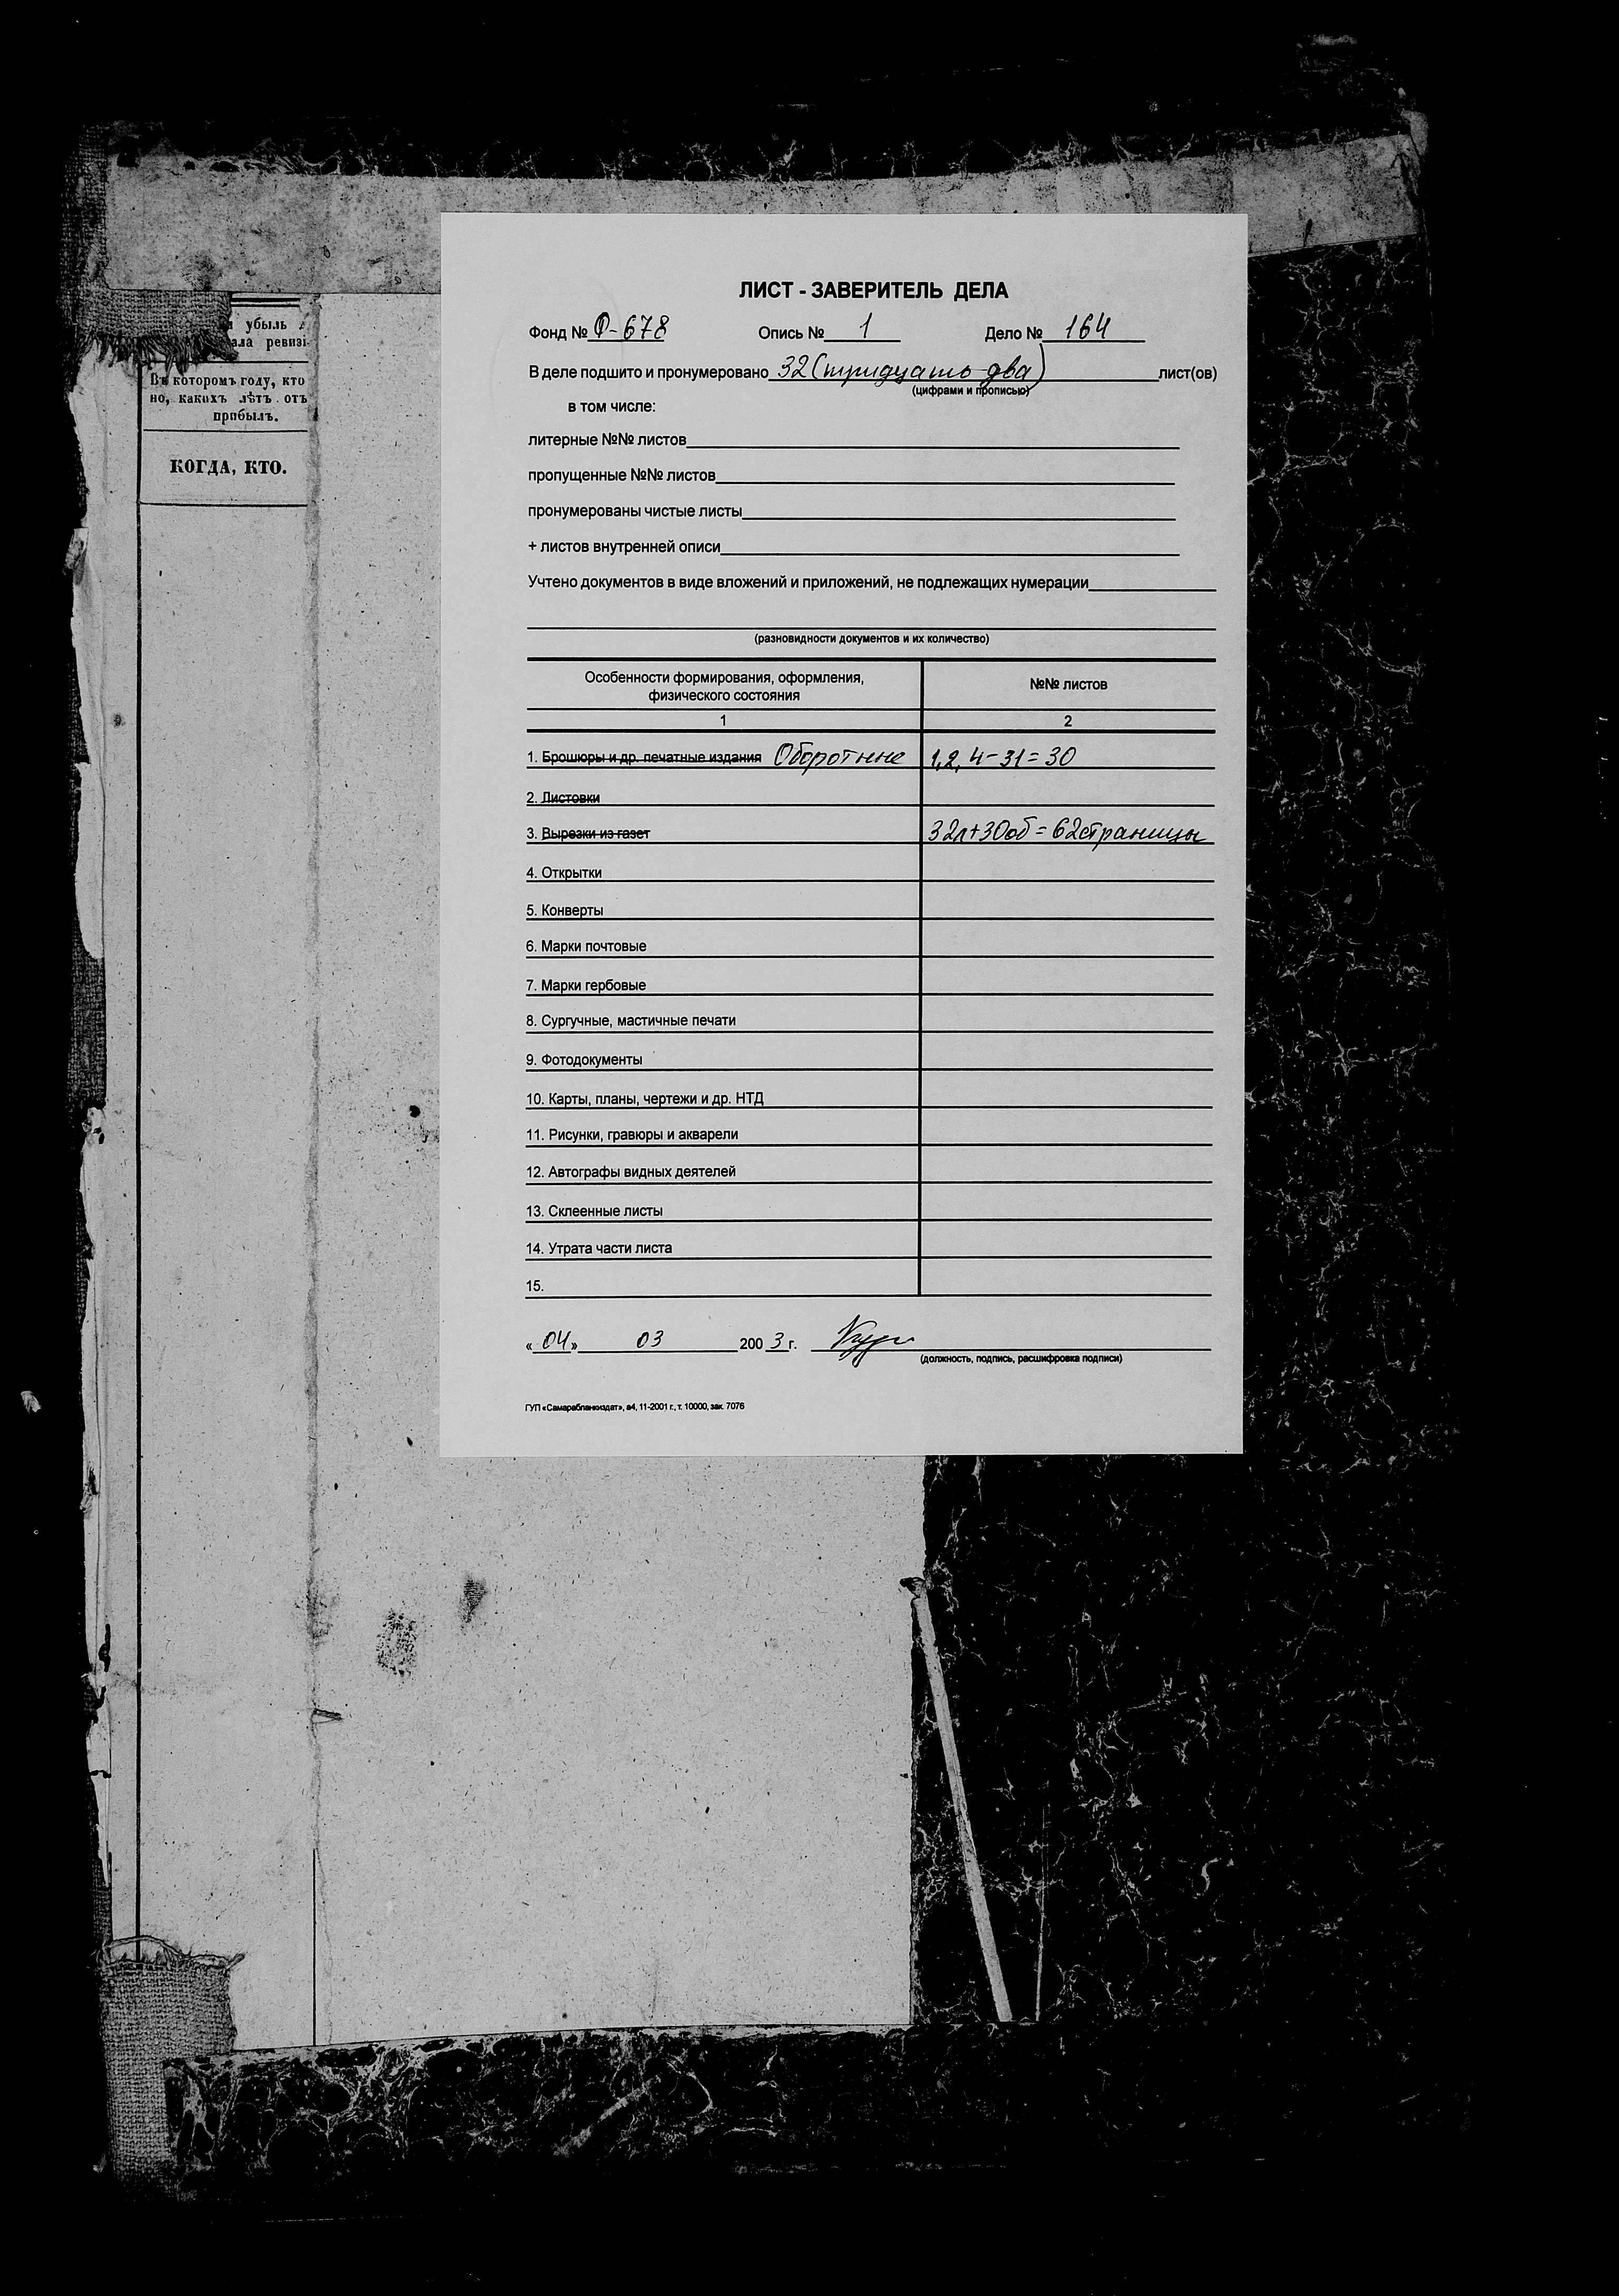 убыль
ала ревизі
Въ которомъ году, кто
но, какихъ лѣтъ отъ
прибылъ.
КОГДА, КТО.
ЛИСТ - ЗАВЕРИТЕЛЬ ДЕЛА
Фонд № Ф-678 Опись № 1 Дело № 164
В деле подшито и пронумеровано 32 (тридцать два) лист(ов)
(цифрами и прописью)
в том числе:
литерные №№ листов
пропущенные №№ листов
пронумерованы чистые листы
+ листов внутренней описи
Учтено документов в виде вложений и приложений, не подлежащих нумерации
(разновидности документов и их количество)
Особенности формирования, оформления, №№ листов
физического состояния
1 2
1. Брошюры и др. печатные издания Оборотные 1, 2, 4-31=30
2. Листовки
3. Вырезки из газет 32л+30об=62страницы
4. Открытки
5. Конверты
6. Марки почтовые
7. Марки гербовые
8. Сургучные, мастичные печати
9. Фотодокументы
10. Карты, планы, чертежи и др. НТД
11. Рисунки, гравюры и акварели
12. Автографы видных деятелей
13. Склеенные листы
14. Утрата части листа
15.
«04» 03 2003 г.
(должность, подпись, расшифровка подписи)
ГУП «Самарабланкиздат», а4, 11-2001 г., т. 10000, зак. 7076